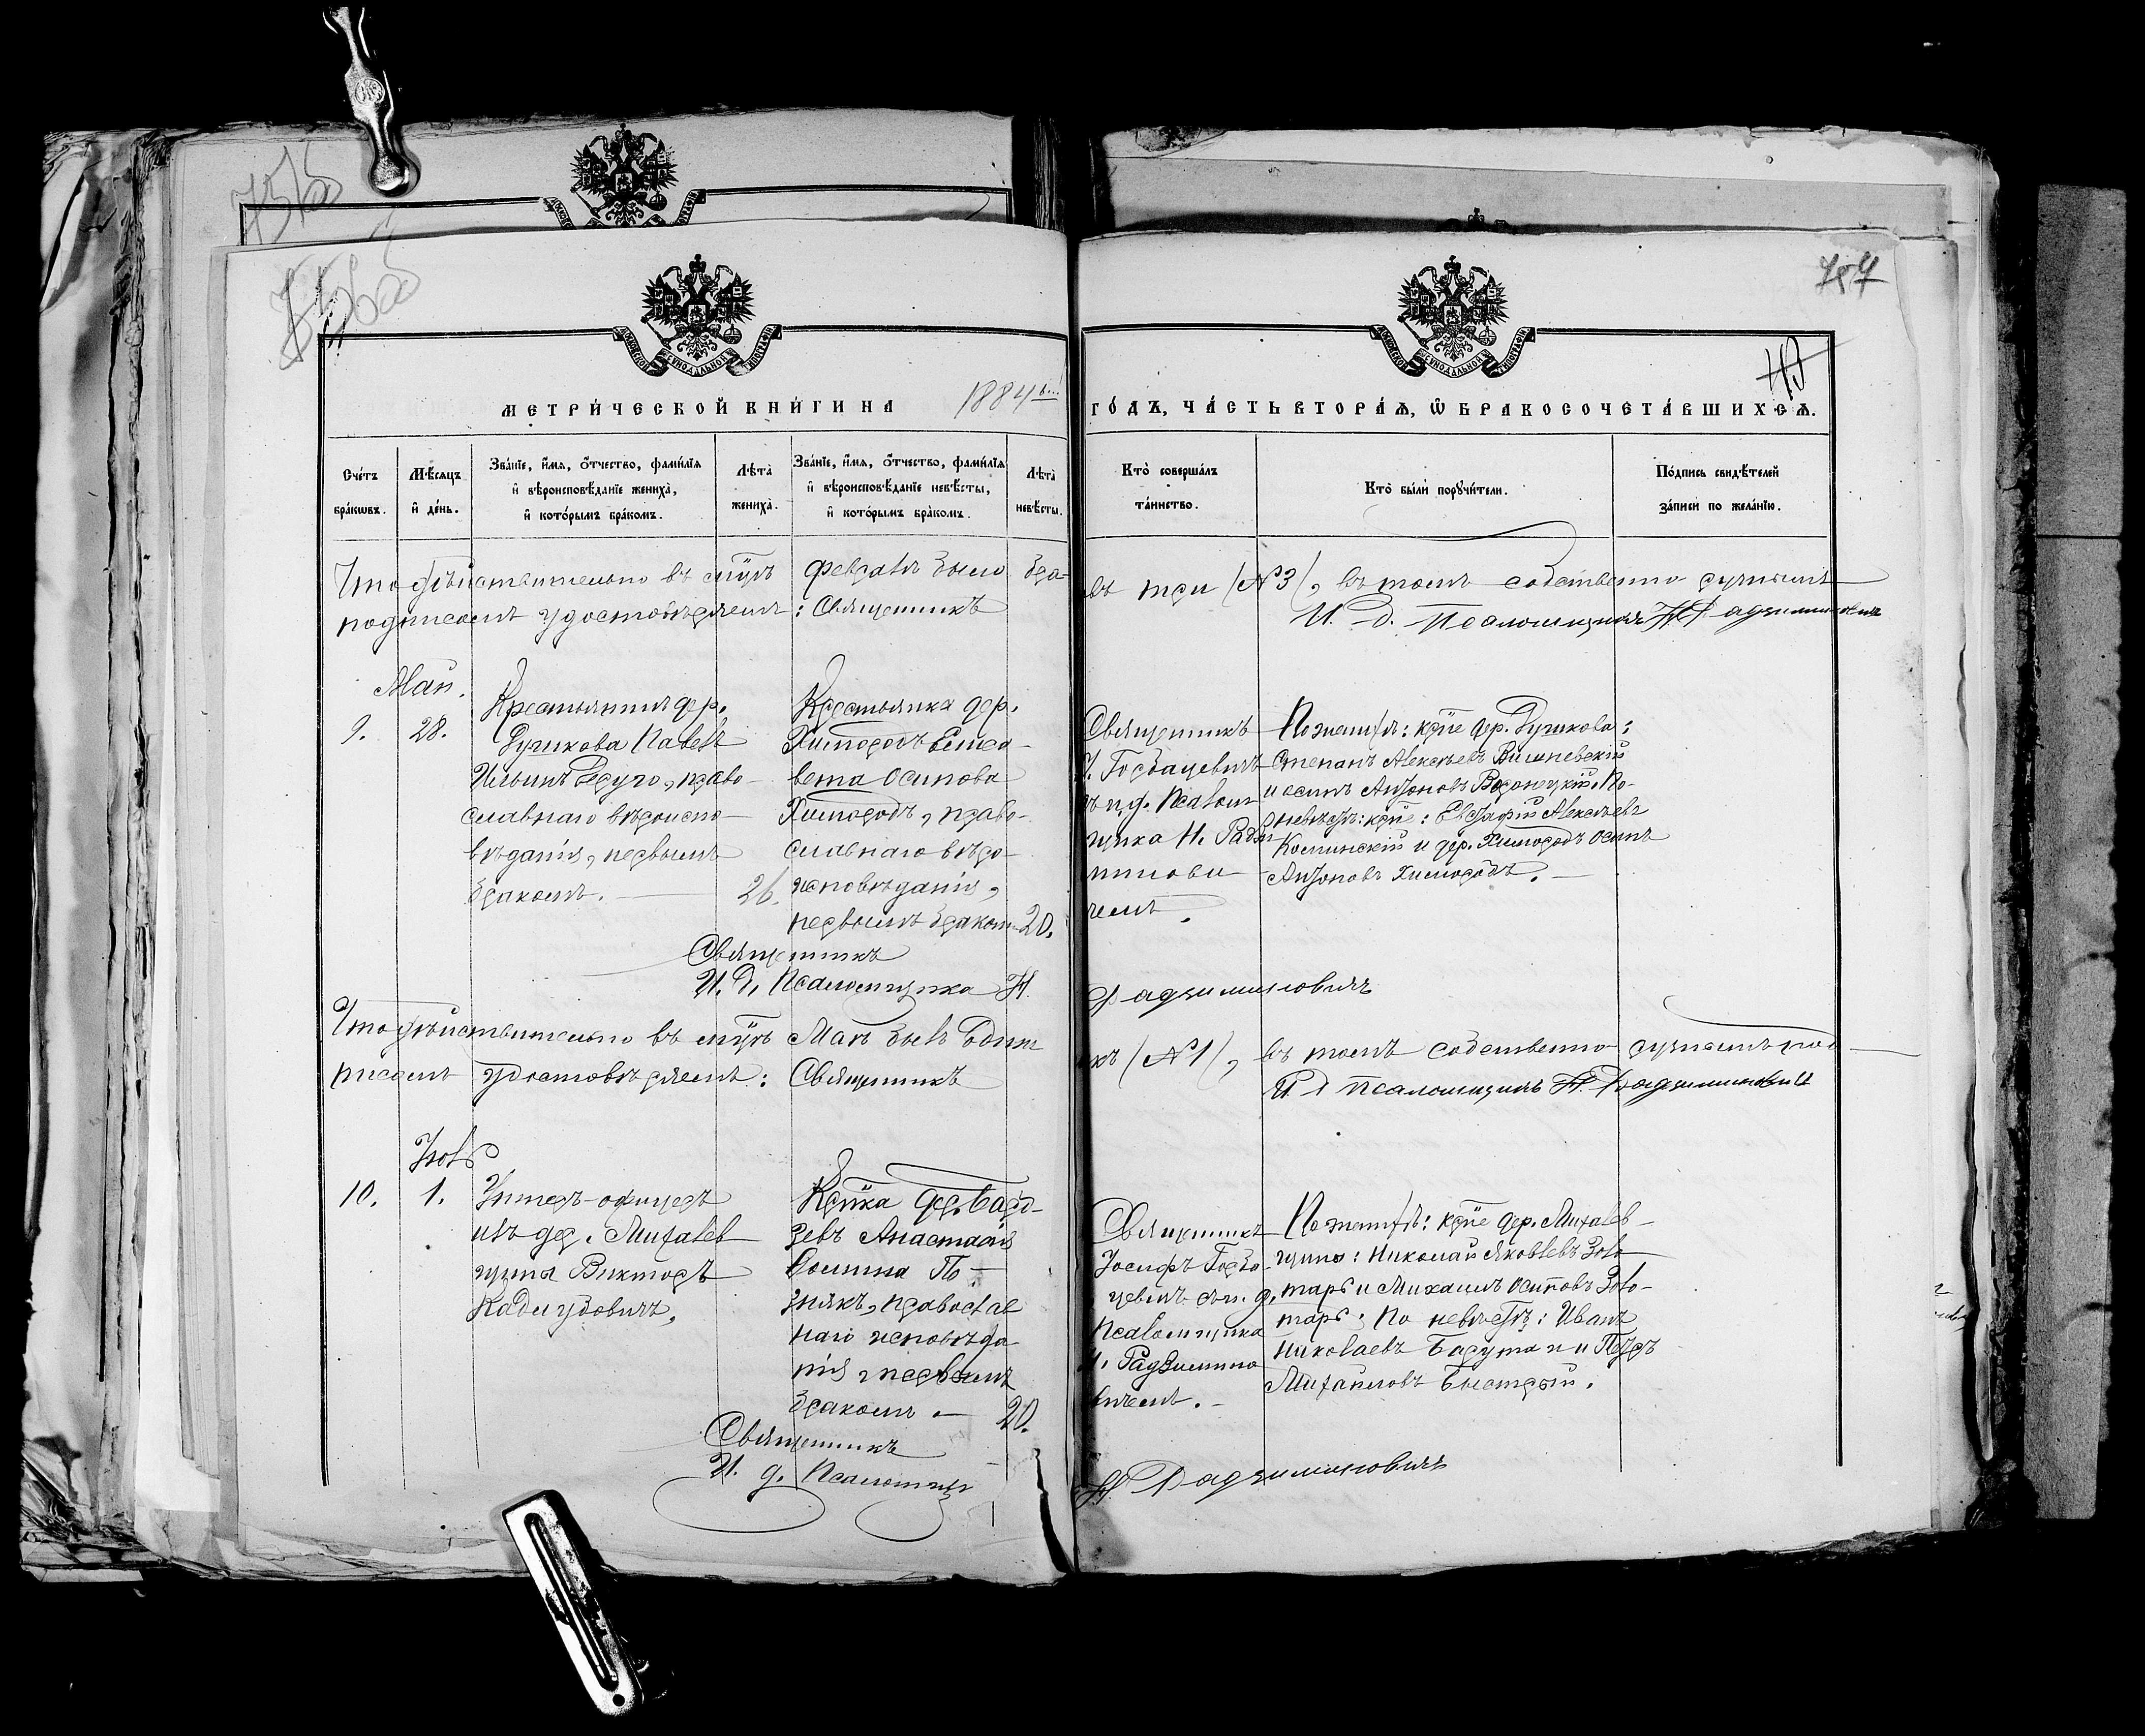 757
МЕТРИЧЕСКОЙ КНИГИ НА 1884й ГОДЪ, ЧАСТЬ ВТОРАЯ, Ѿ БРАКОСОЧЕТАВШИХСЯ.
Счетъ браковъ.
Мѣсяцъ и день.
Званіе, имя, отчество, фамилія
и вѣроисповѣданіе жениха,
и которымъ бракомъ.
Лѣта
жениха.
Званіе, имя, отчество, фамилія
и вѣроисповѣданіе невѣсты,
и которымъ бракомъ.
Лѣта
невѣсты.
Кто совершалъ
таинство.
Кто были поручители.
Подпись свидѣтелей
записи по желанію.
Что дѣйствительно въ мцѣ февралѣ было бра-
ковъ три (№3), въ томъ собственно ручнымъ
подписомъ удостовѣряемъ: Священникъ
И. д. Псаломщика Н Радзиминовичъ
Май.
9. 28.
Крестьянинъ дер.
Ручикова Павелъ
Ильинъ
право-
славнаго вѣроиспо-
вѣданія, первымъ
бракомъ. — 26.
Крестьянка дер.
Химородъ Елиса-
вета Осипова
Химородъ, право-
славнаго вѣро-
исповѣданія,
первымъ бракомъ 20.
Священникъ
І. Горбацевичъ
съ и.д. Псалом-
щика Н. Радзи-
минови-
чемъ.
По женихѣ: крѣне дер. Ручикова:
Степанъ Алексѣевъ Вишневскій
и Осипъ Антоновъ По-
невѣстѣ: крѣне: Евстафій Алексѣевъ
и дер. Химородъ Осипъ
Антоновъ Химородъ. —
Священникъ
И. д. Псаломщика Н. Радзиминовичъ
Что дѣйствительно въ мцѣ Маѣ былъ Одинъ
бракъ (№1), въ томъ собственно ручнымъ под-
писомъ удостовѣряемъ: Священникъ
И д Псаломщика Н. Радзиминовичъ
Іюль
10. 1.
Унтеръ-офицеръ
изъ дер. Михалев-
щины Викторъ
Крѣнка дер.
Анастасія
Фомина По-
знякъ, православ-
наго исповѣда-
нія, первымъ
бракомъ. — 20.
Священникъ
Іосифъ Горба-
цевичъ съ и. д.
Псаломщика
Н. Радзимино-
вичемъ. -
По женихѣ: крѣне дер. Михалев-
щины: Николай Яковлевъ Золо-
тарь и Михаилъ Осиповъ Золо-
тарь; По невѣстѣ: Иванъ
Николаевъ и Петръ
Михайловъ Быстрый.
Священникъ
И. д. Псаломщика
Н Радзиминовичъ